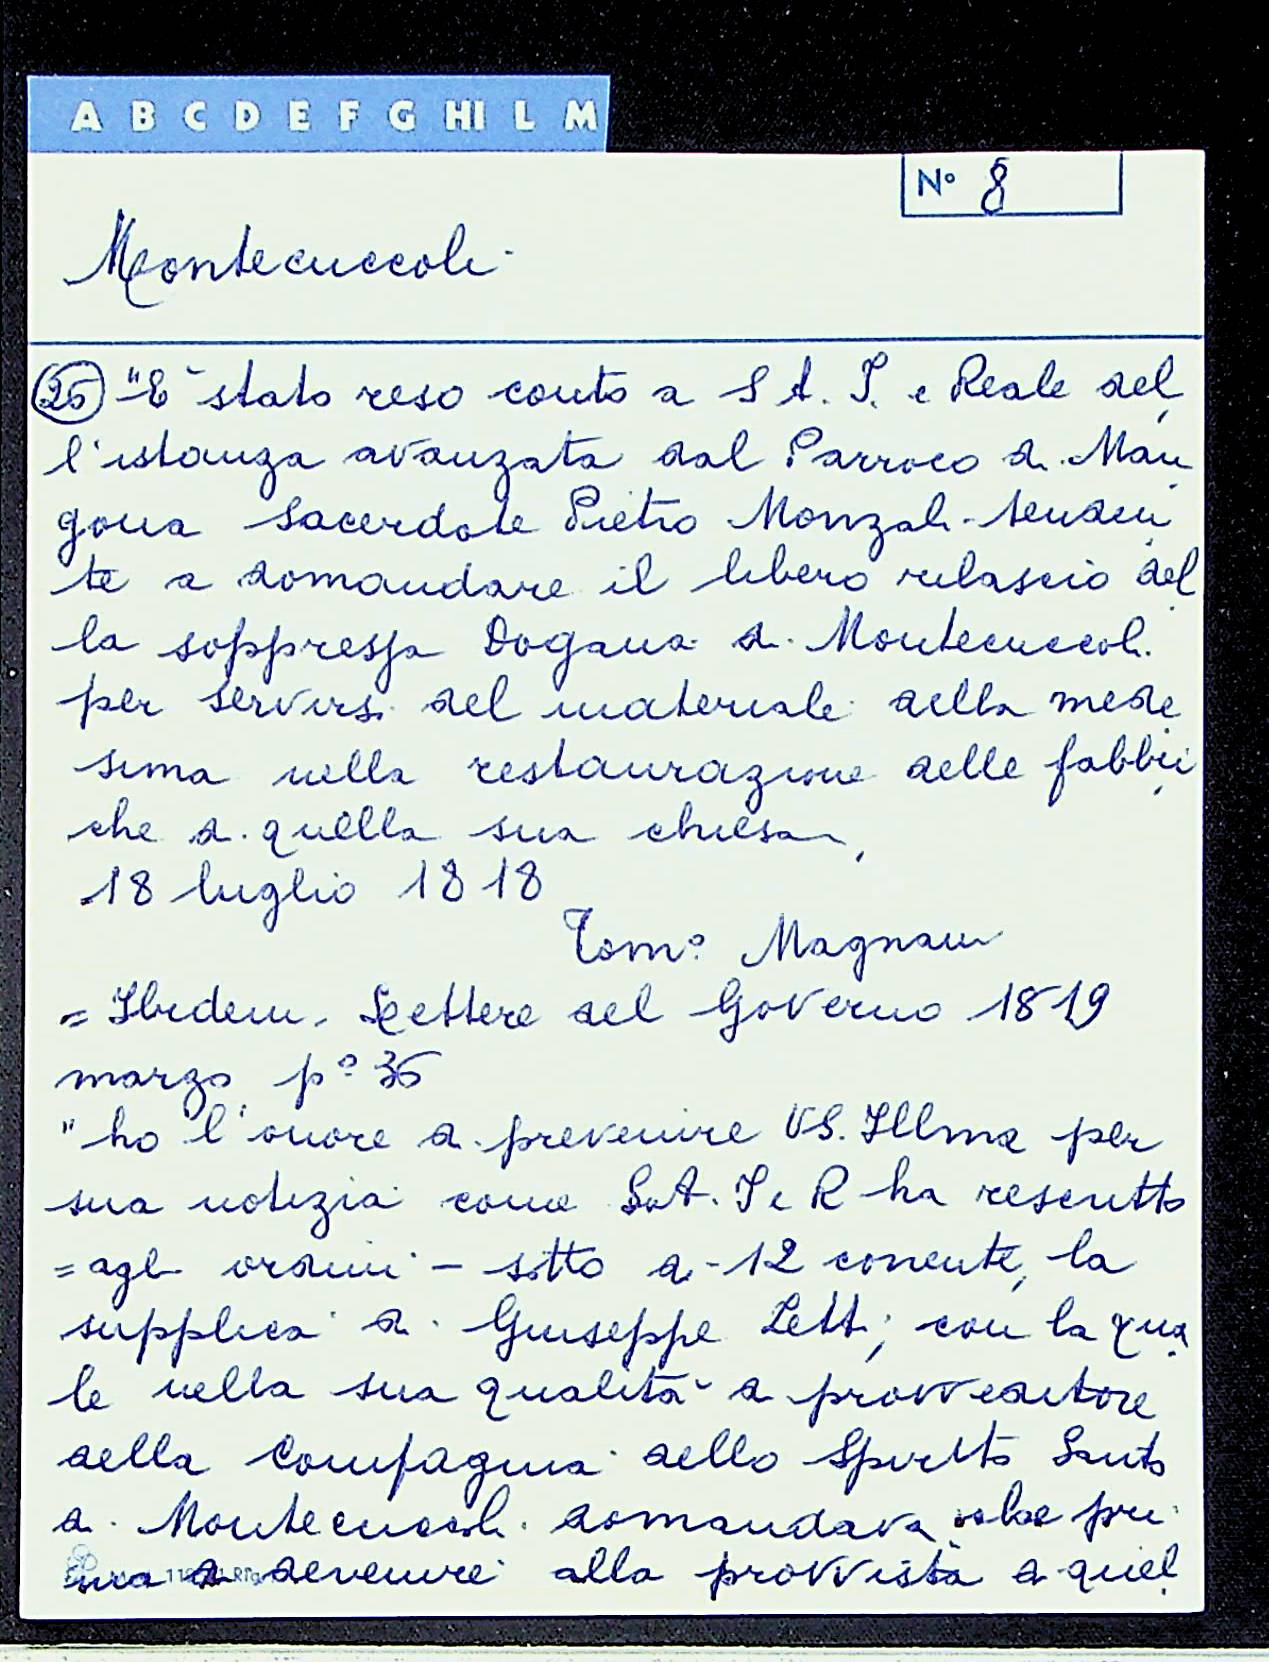 A B C D E F G HI L M
N° 8
Montecuccoli
25 "E' stato reso conto a S A. I. e Reale del
l'istanza avanzata dal Parroco di Man
gona Sacerdote Pietro Monzali tenden
te a domandare il libero rilascio del
la soppressa Dogana di Montecuccoli
per servirsi del materiale della mede
sima nella restaurazione delle fabbri
che di quella sua chiesa
18 luglio 1818
Tom° Magnani
= Ibidem. Lettere del Governo 1819
marzo p° 36
"ho l'onore di prevenire VS. Illma per
sua notizia come S.A. I e R ha rescritto
= agli ordini - sotto di 12 corrente, la
supplica di Giuseppe Letti, con la qua
le nella sua qualità di provveditore
della Compagnia dello Spirito Santo
di Montecuccoli domandava che pri
ma di devenire alla provvista di quel